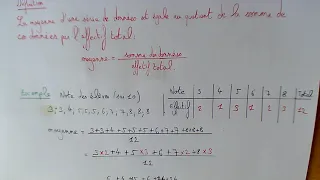 Définition
La moyenne d'une série de données est égale au quotient de la somme de
ces données par l'effectif total.
moyenne = somme des données / effectif total
Exemple: Note des élèves (sur 10)
3, 3, 4, 5, 5, 5, 6, 7, 7, 8, 8, 8
Note 3 4 5 6 7 8 Total
Effectif 2 1 3 1 2 12
moyenne = 3+3+4+5+5+5+6+7+7+8+8+8 / 12
= 3×2+4+5×3+6+7×2+8×3 / 12